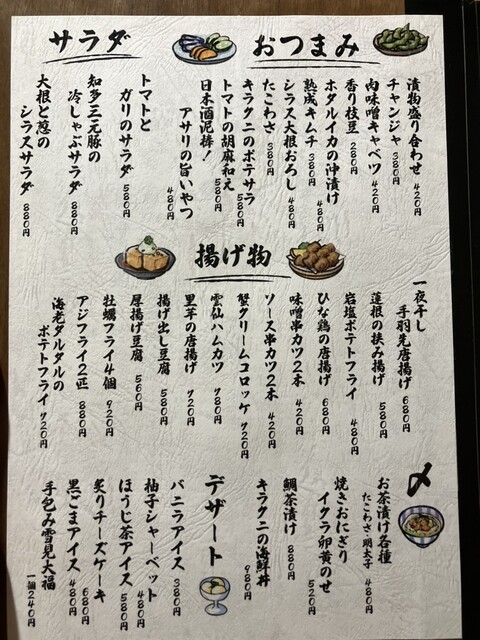 おつまみ
漬物盛り合わせ 420円
チャンジャ 380円
肉味噌キャベツ 420円
香り枝豆 280円
ホタルイカの沖漬け 480円
熟成キムチ 380円
シラス大根おろし 480円
たこわさ 380円
キラクニのポテサラ 580円
トマトの胡麻和え 580円
日本酒泥棒!
アサリの旨いやつ 480円
サラダ
トマトと
ガリのサラダ 580円
知多三元豚の
冷しゃぶサラダ 880円
大根と葱の
シラスサラダ 880円
揚げ物
一夜干し
手羽先唐揚げ 680円
蓮根の挟み揚げ 580円
岩塩ポテトフライ 480円
ひな鶏の唐揚げ 680円
味噌串カツ2本 420円
ソース串カツ2本 420円
蟹クリームコロッケ 720円
雲仙ハムカツ 780円
里芋の唐揚げ 720円
揚げ出し豆腐 580円
厚揚げ豆腐 560円
牡蠣フライ4個 920円
アジフライ2匹 880円
海老タルタルの
ポテトフライ 720円
〆
お茶漬け各種
たこわさ・明太子 480円
焼きおにぎり
イクラ卵黄のせ 520円
鯛茶漬け 880円
キラクニの海鮮丼 980円
デザート
バニラアイス 380円
柚子シャーベット 480円
ほうじ茶アイス 580円
炙りチーズケーキ 680円
黒ごまアイス 480円
手包み雪見大福
一個240円